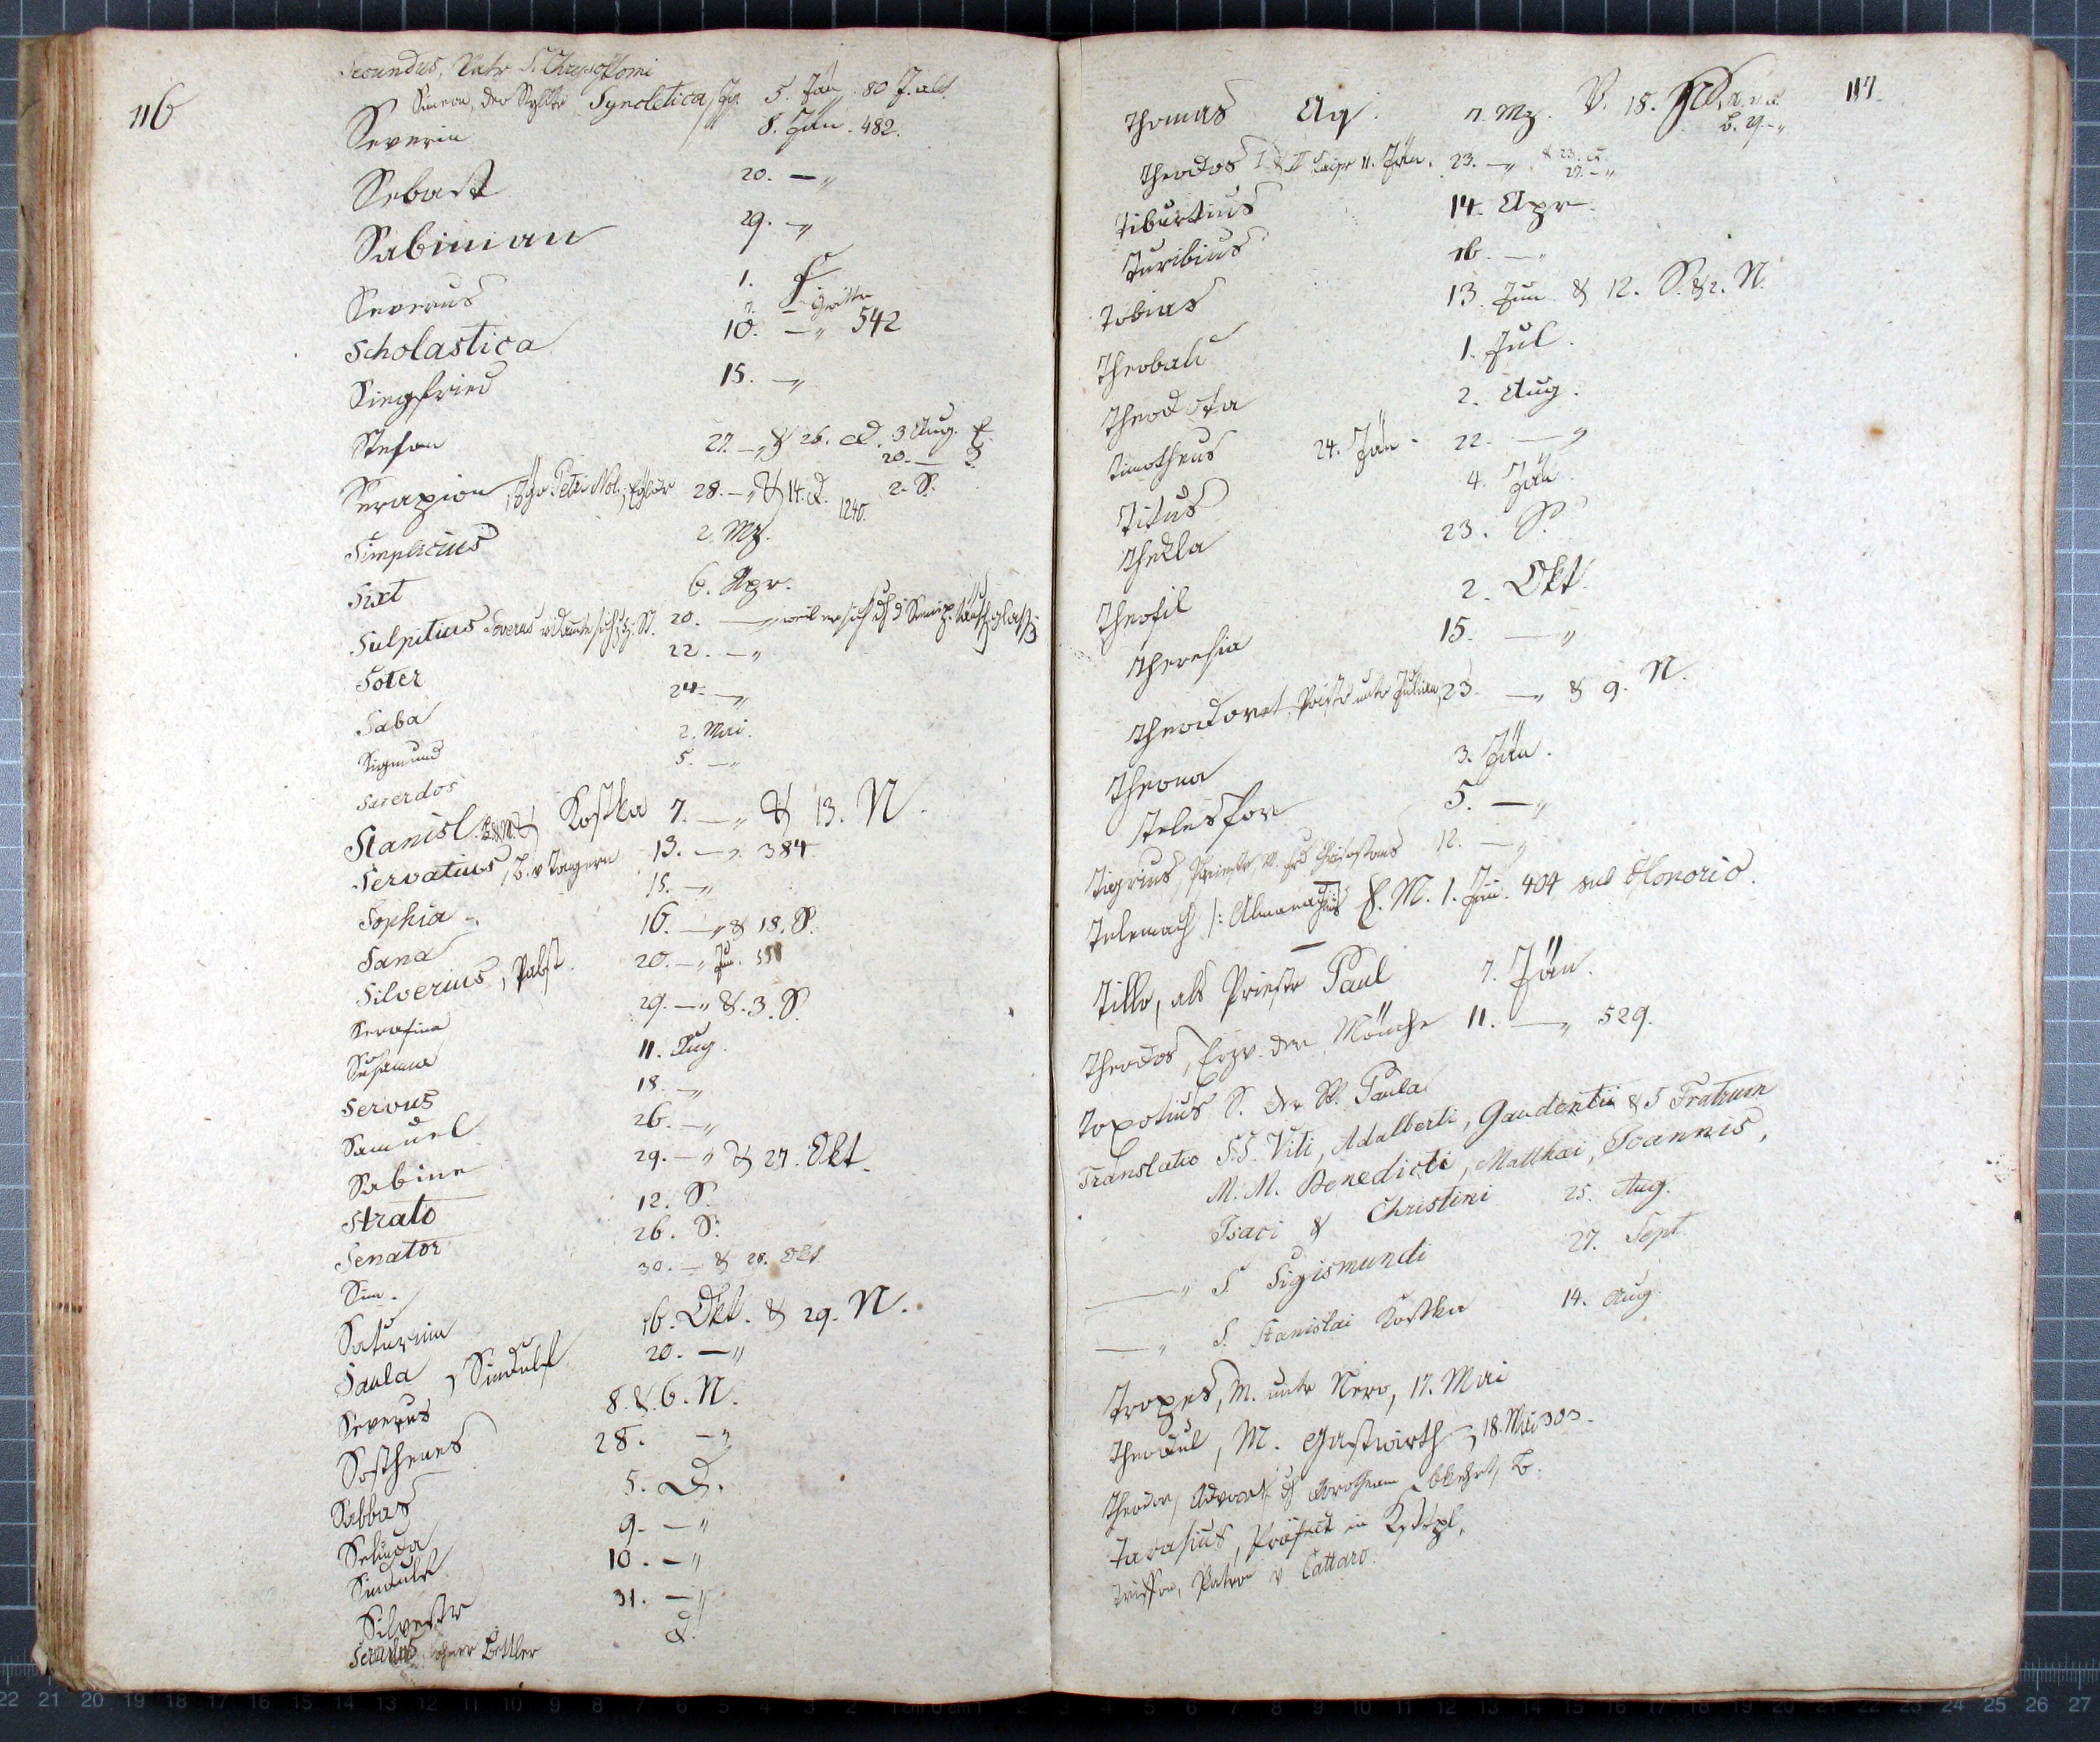 116
Secundus, Vatr S. Chrysostomi
Simeon, der Syncletica, Jgr. 5. Jän. 80 J. alt.
Severin 8. Jän. 482.
Sebast 20. —"
Sabinian 29. —"
Severus 1. F.
Scholastica 10. —" 542
Siegfried 15. —"
Stefan 27. —" & 26. D. 3 Aug.
Serapion, Petr Nol. 28. —" & 14. 1240. 2. S.
Simplicius 2. Mz.
Sixt 6. Apr.
Sulpitius Severus 20. —"
Soter 22. —"
Saba 24. —"
Sigmund 2. Mai.
Sacerdos 5. —"
Stanisl. Kostka 7. —" & 13. N.
Servatius, B. v Tongern 13. —" 384.
Sophia 15. —"
Sana 16. —" & 18. S.
Silverius, Pabst. 20. —" Jun.
Serafina 29. —" & 3. S.
Susanna 11. Aug.
Servus 18. —"
Samuel 26. —"
Sabine 29. —" & 27. Okt.
Strato 12. S.
Senator 26. S.
Sim. 30. — & 28. Okt
Saturnin 16. Okt. & 29. N.
Saula 20. —"
Severus, Sindulf 8. & 6. N.
Sosthenes 28. —"
Sabbas 5. D.
9. —"
Sindulf 10. —"
Silvestr 31. —"
Servulus Bettler D.
117.
Thomas Aq. 7. Mz. V. 18.
Theodos I & II 11. Jän. 23. —"
Tiburtius 14. Apr.
Turibius 16. —"
Tobias 13. Jun. & 12. S. & 2. N.
Theobald 1. Jul.
Theodota 2. Aug.
Timotheus 24. Jän. 22. —"
Titus 4. Jän.
Thekla 23. S.
Theofil 2. Okt.
Theresia 15. —"
Theodoret, Priester unter Julian 23. —" & 9. N.
Theona 3. Jän.
Telesfor 5. —"
Tigrius, Priester 12. —"
Telemach /: Almachius E. M. 1. Jän. 404 sub Honorio.
Tillo, als Priester Paul 7. Jän.
Theodos, Erzv. der Mönche 11. —" 529.
Toxotius S. der St. Paula
Translatio S.S. Viti, Adalberti, Gaudentii & 5 Fratrum
M. M. Benedicti, Matthæi, Joannis,
Isaci & Christini 25. Aug.
—" S Sigismundi 27. Sept
—" S. Stanislai Kostka 14. Aug.
Tropes, M. unter Nero, 17. Mai
Theodul, M. Gastwirth, 18. Mai 303.
Theodor, Advocat, Dorotheam bekehrt, 6.
Tarasius, Präfect in Kstpl.
Triffon, Patron v Cattaro.